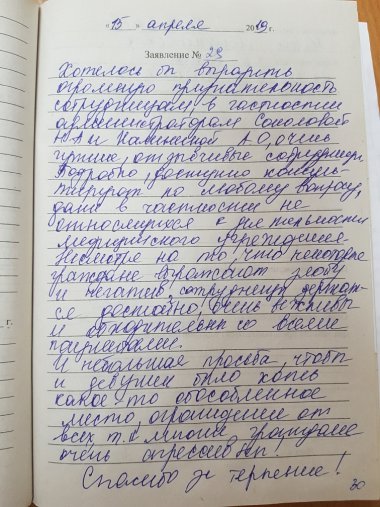 "15" апреля 2019 г.
Заявление № 29
Хотелось бы выразить
огромную признательность
сотрудницам, в частности
администраторам Соколовой
Н.А и Калинской А О, очень
чуткие, отзывчивые сотрудницы
Подробно, доступно консуль-
тируют по любому вопросу,
даже в частности не
относящихся к деятельности
медицинского учреждения.
Несмотря на то, что некоторые
граждане выражают злобу
и негатив, сотрудницы держат-
ся достойно, очень вежливы
и обходительны со всеми
пациентами.
И небольшая просьба, чтобы
и девушек было хоть
какое то обособленное
место, огромление от
всех т.к многие граждане
очень агрессивны!
Спасибо за терпение!
г.
30